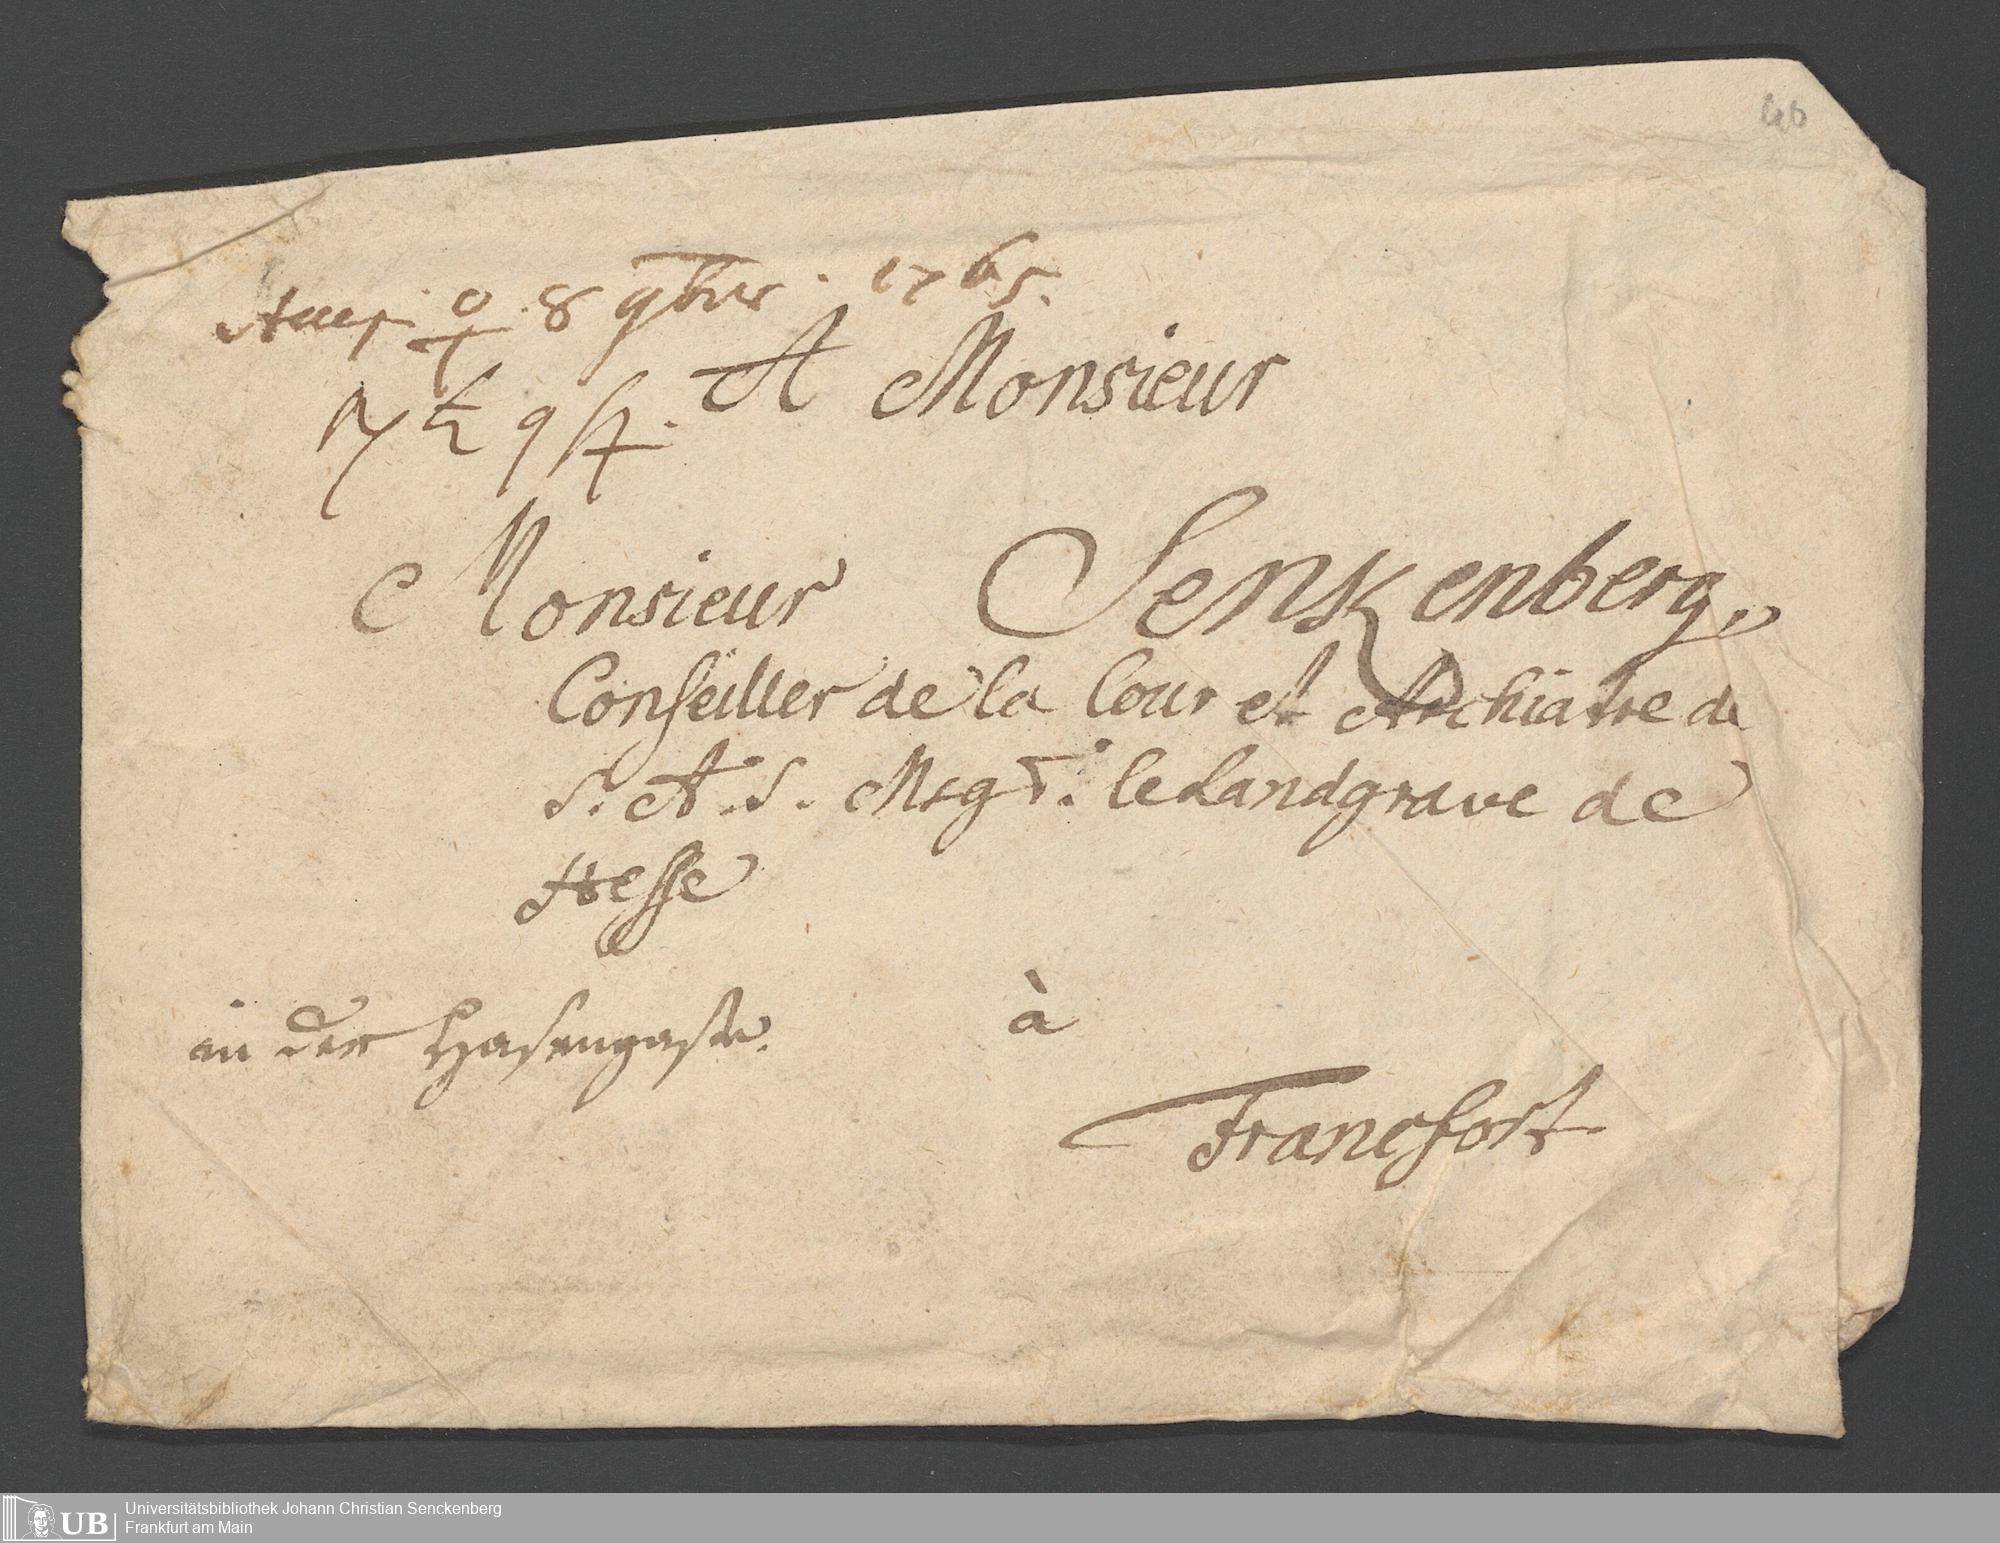 46
Accep. ♀ 8 9bris. 1765.
♄ 9
A Monsieur
Monsieur Senkenberg,
Conseiller de la Cour et Archiatre de
S. A. S. Msgr. le Landgrave de
Hesse
in der Hasengasse.
à
Francfort
UB
Universitätsbibliothek Johann Christian Senckenberg
Frankfurt am Main